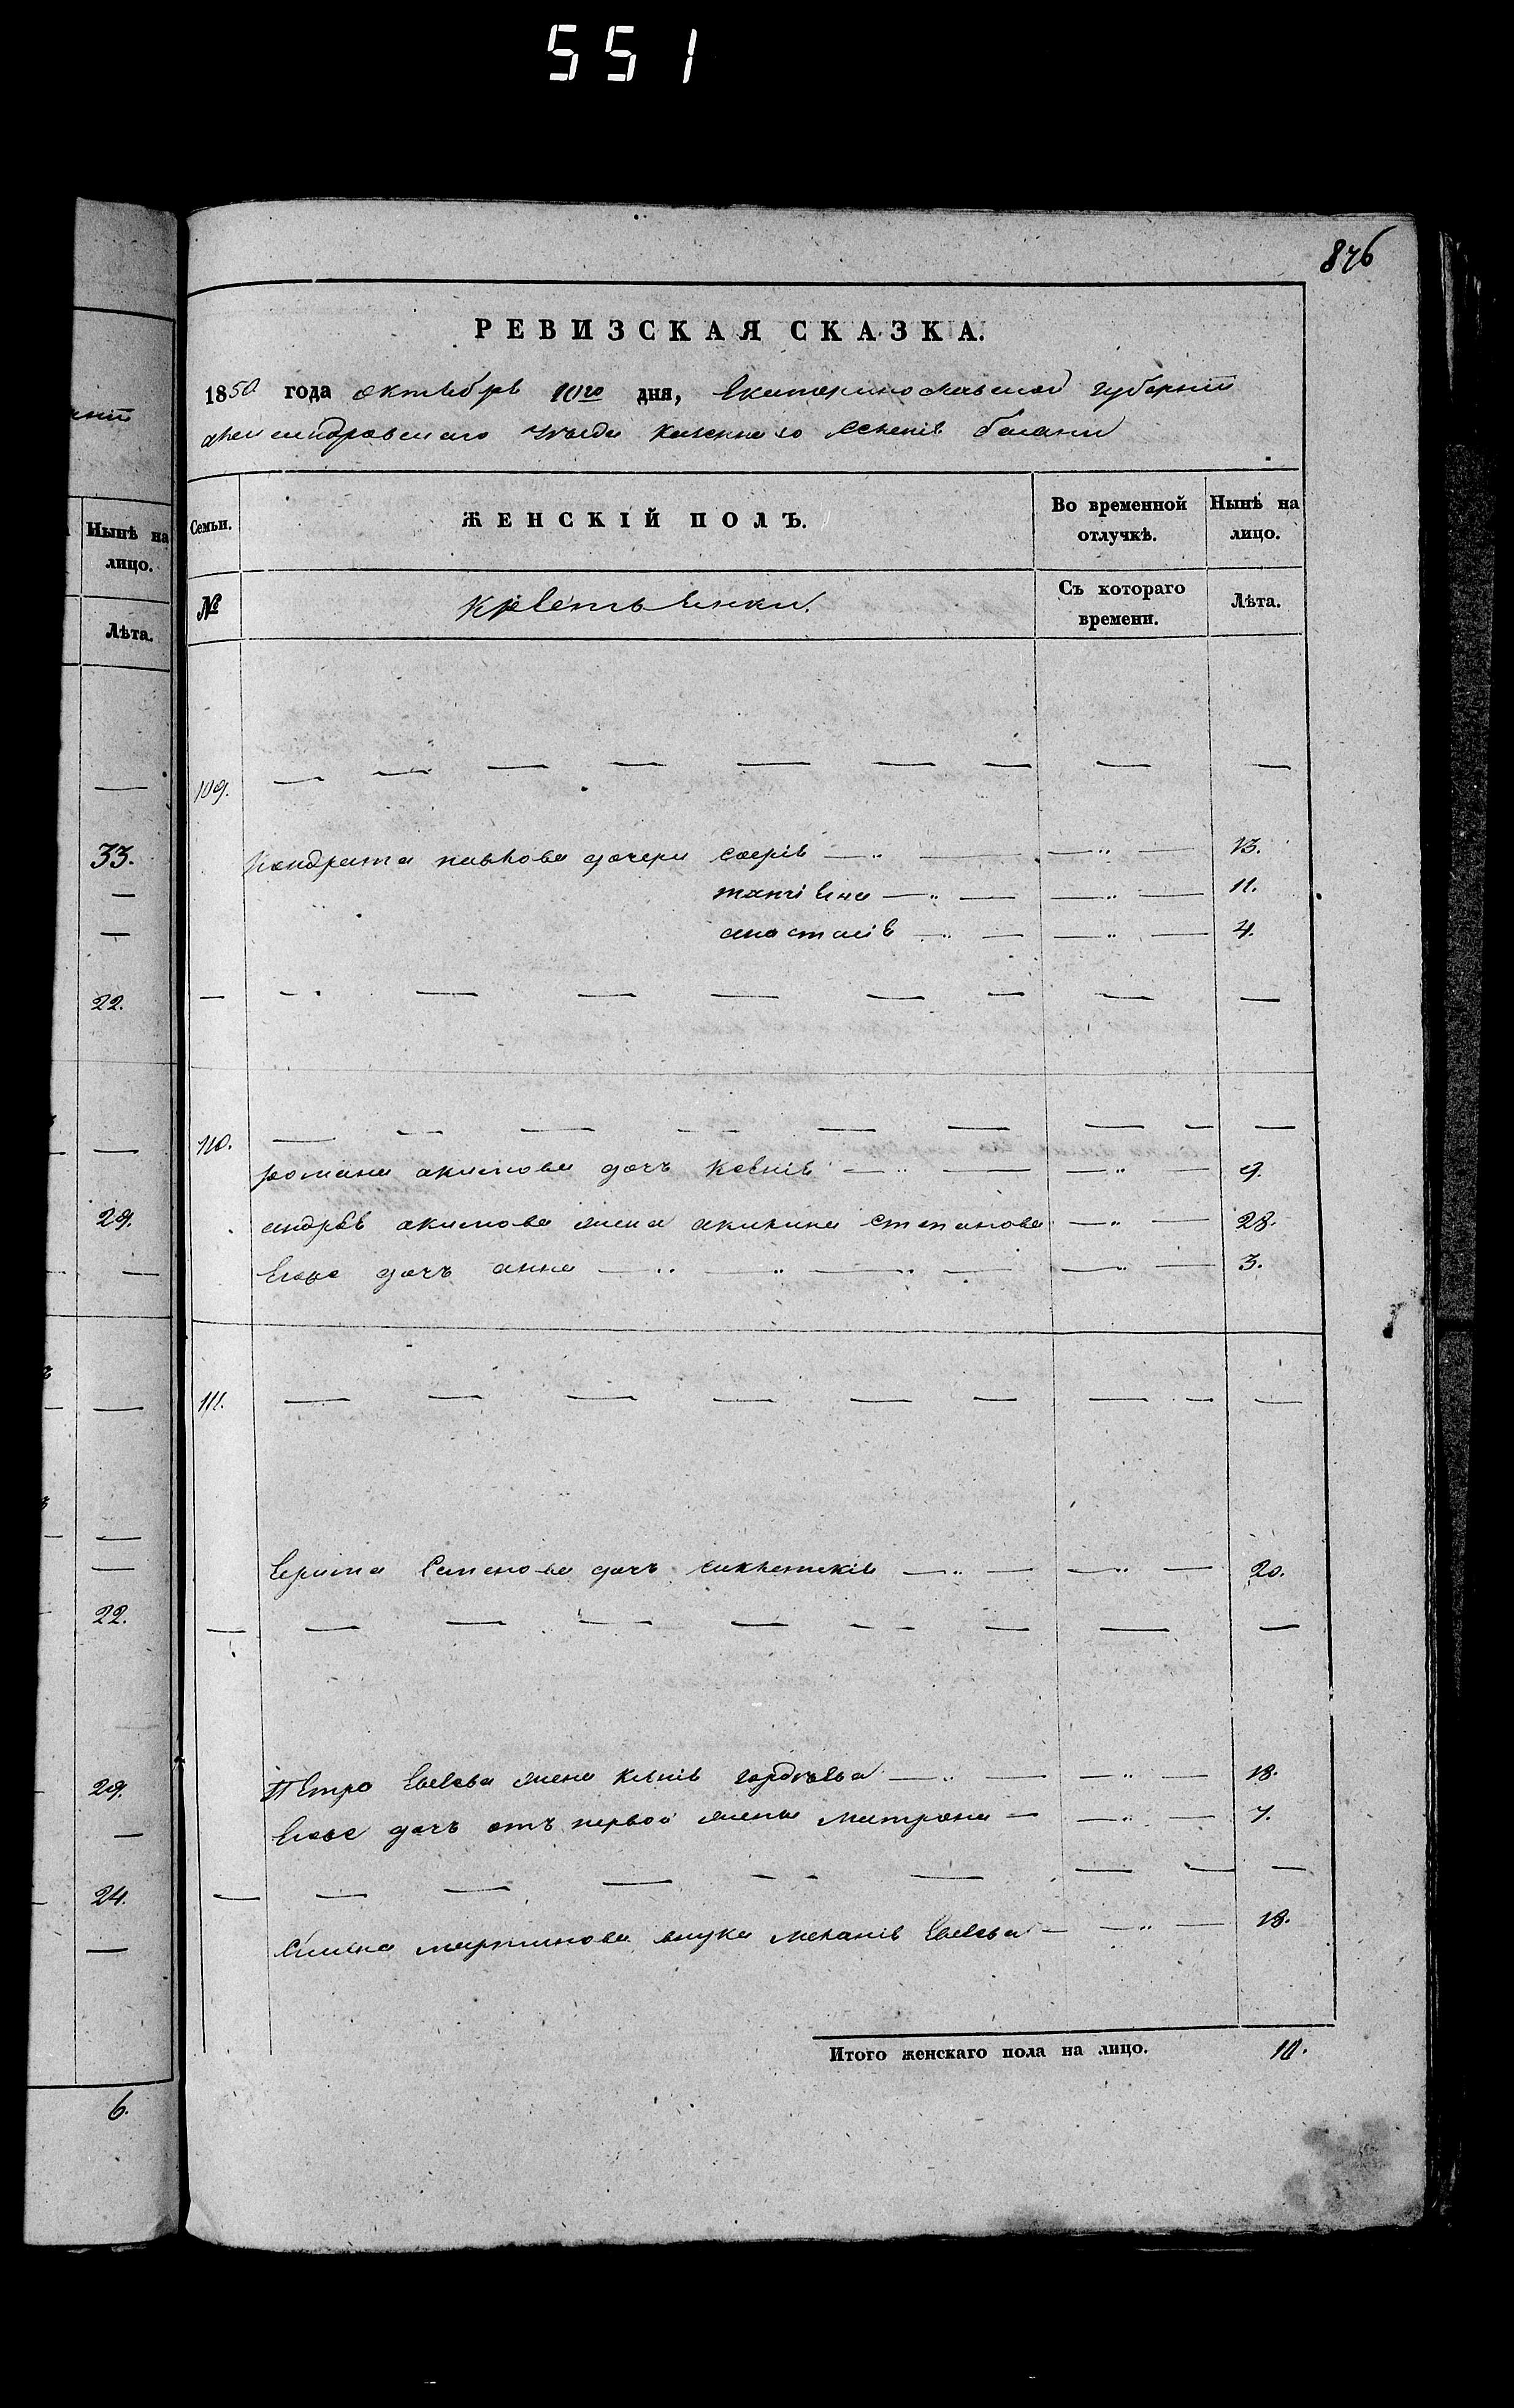 551
876
РЕВИЗСКАЯ СКАЗКА.
1850 года октября 10го дня, Екатеринославской губернiи
александровскаго уѣзда казеннаго селенiя
Семьи. ЖЕНСКІЙ ПОЛЪ. Во временной отлучкѣ. Нынѣ на лицо.
№ крестьянки. Съ котораго времени. Лѣта.
109. — — — — — — — — —
Кондрата павлова дочери софiя — „ — — „ — 13.
татiяна — „ — — „ — 11.
анастасiя — „ — — „ — 4.
— — — — — — — — —
110. — — — — — — — — —
романа акимова дочь ксенiя — „ — — „ — 9.
андрѣя акимова жена акилина степанова — „ — 28.
Его дочь анна — „ — „ — „ — — „ — 3.
111. — — — — — — — — —
Семенова дочь — „ — — „ — 20.
— — — — — — — — —
Петра жена ксенiя гордѣева — „ — — „ — 18.
дочь отъ первой жены матрона — — „ — 7.
— — — — — — — — —
мартинова внука меланiя — — „ — 18.
Итого женскаго пола на лицо. 10.
Нынѣ на лицо.
Лѣта.
—
33.
—
—
22.
—
29.
—
—
—
—
22.
29.
—
24.
—
6.